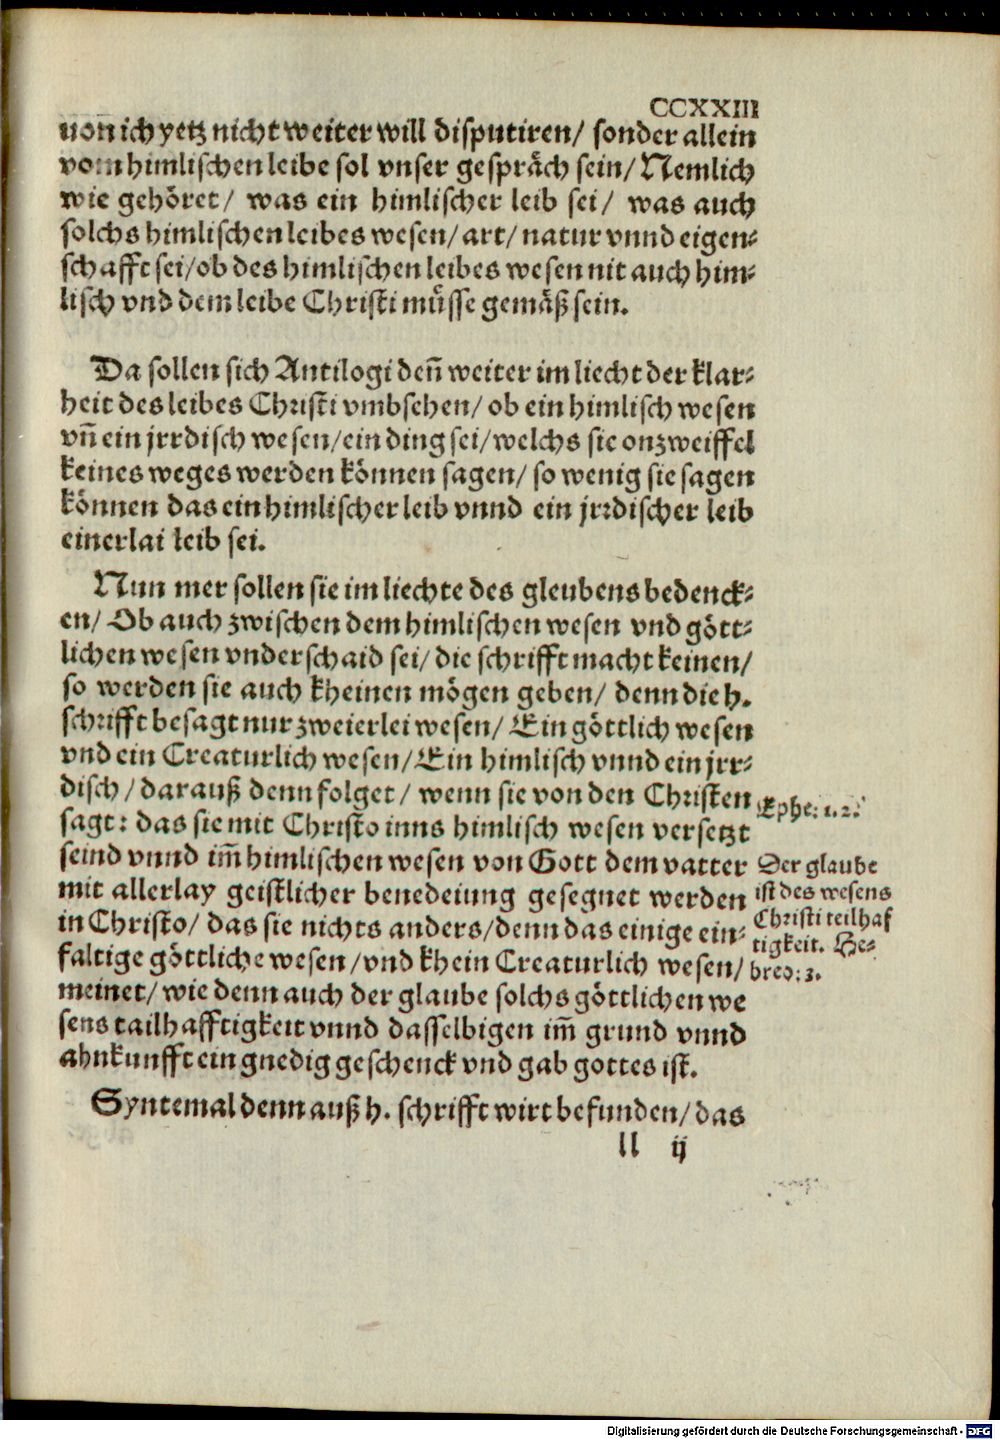 CCXXIII
uon ich yetz nicht weiter will disputiren/ sonder allein
vom himlischen leibe sol vnser gespräch sein/ Nemlich
wie gehöret/ was ein himlischer leib sei/ was auch
solchs himlischen leibes wesen/ art/ natur vnnd eigen⸗
schafft sei/ ob des himlischen leibes wesen nit auch him⸗
lisch vnd dem leibe Christi müsse gemäß sein.
Da sollen sich Antilogi deñ weiter im liecht der klar⸗
heit des leibes Christi vmbsehen/ ob ein himlisch wesen
vñ ein jrrdisch wesen/ ein ding sei/ welchs sie onzweiffel
keines weges werden können sagen/ so wenig sie sagen
können das ein himlischer leib vnnd ein jrrdischer leib
einerlai leib sei.
Nun mer sollen sie im liechte des gleubens bedenck⸗
en/ Ob auch zwischen dem himlischen wesen vnd gött⸗
lichen wesen vnderschaid sei/ die schrifft macht keinen/
so werden sie auch kheinen mögen geben/ denn die h.
schrifft besagt nur zweierlei wesen/ Ein göttlich wesen
vnd ein Creaturlich wesen/ Ein himlisch vnnd ein jrr⸗
disch/ darauß denn folget/ wenn sie von den Christen
sagt: das sie mit Christo inns himlisch wesen versetzt
seind vnnd im̃ himlischen wesen von Gott dem vatter
mit allerlay geistlicher benedeiung gesegnet werden
in Christo/ das sie nichts anders/ denn das einige ein⸗
faltige göttliche wesen/ vnd khein Creaturlich wesen/
meinet/ wie denn auch der glaube solchs göttlichen we
sens tailhafftigkeit vnnd dasselbigen im̃ grund vnnd
ahnkunfft ein gnedig geschenck vnd gab gottes ist.
Syntemal denn auß h. schrifft wirt befunden/ das
ll ij
Ephe: 1. 2.
Der glaube
ist des wesens
Christi teilhaf
tigkeit. He⸗
breo: 3.
Digitalisierung gefördert durch die Deutsche Forschungsgemeinschaft - DFG